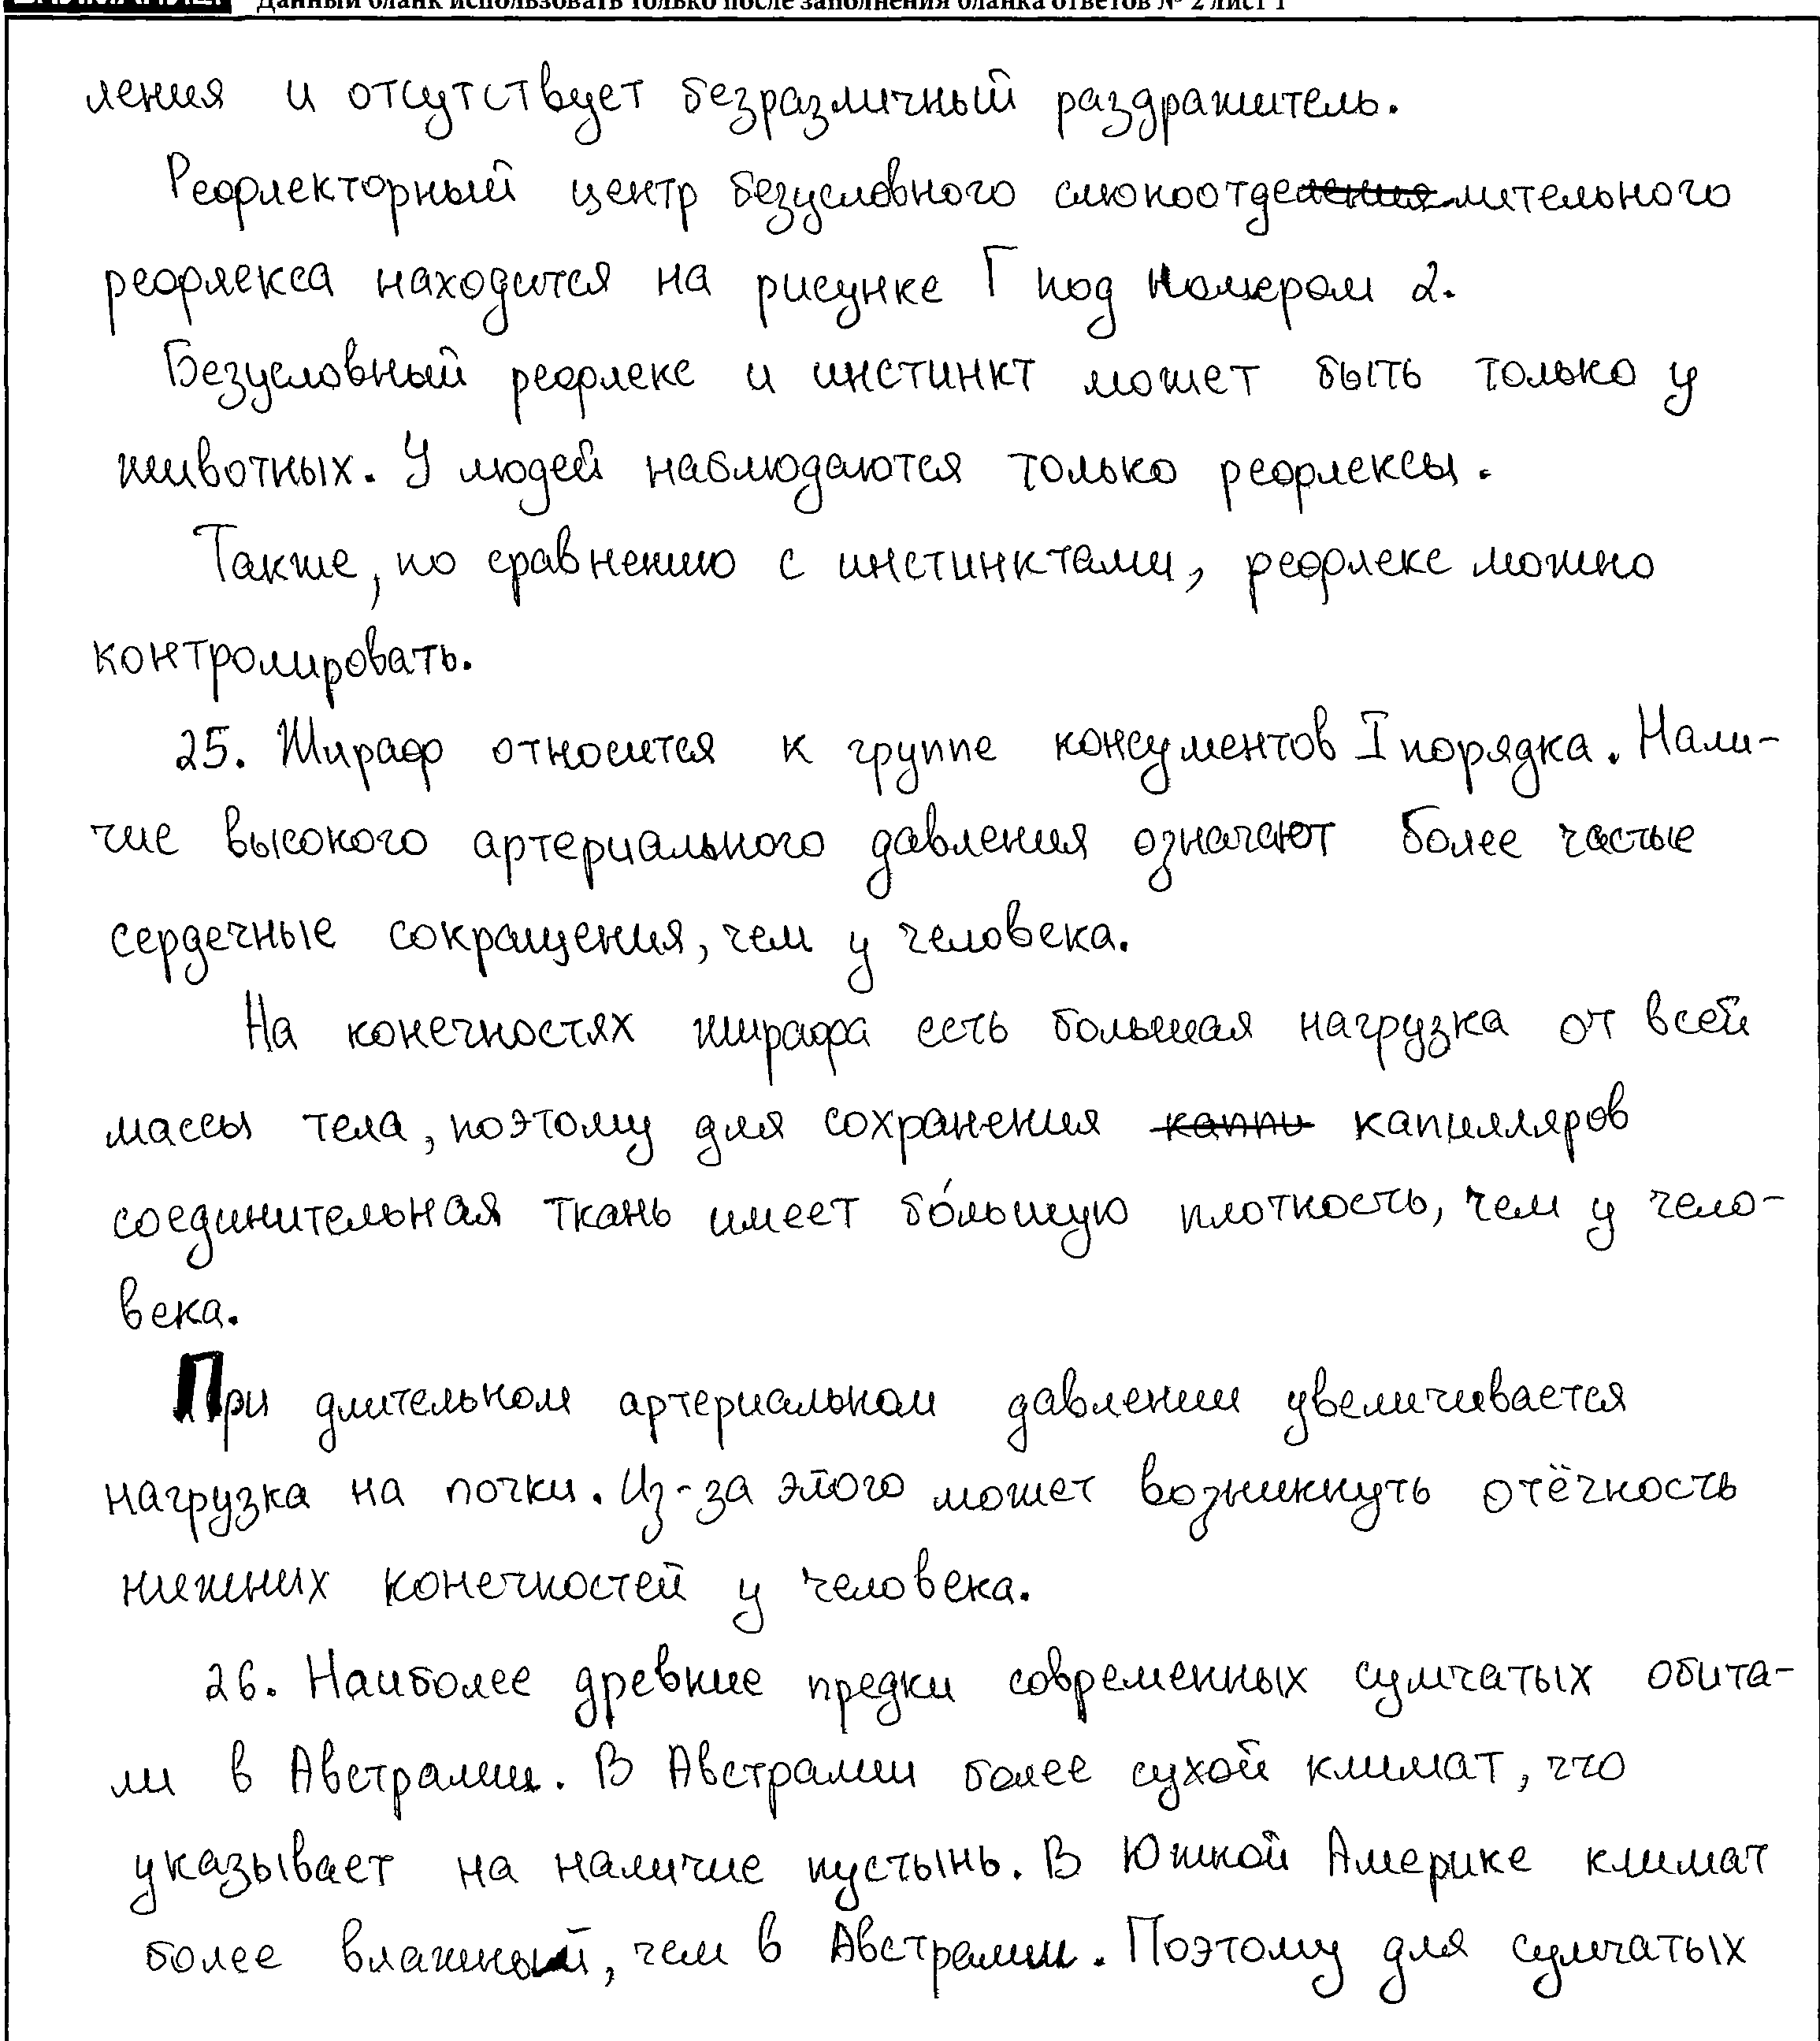 Данный бланк использовать только после заполнения бланка ответов № 2 лист 1
ления и отсутствует безразличный раздражитель.
Рефлекторный центр безусловного слюноотделения-лительного
рефлекса находится на рисунке Г под номером 2.
Безусловный рефлекс и инстинкт может быть только у
животных. У людей наблюдаются только рефлексы.
Также, по сравнению с инстинктами, рефлекс можно
контролировать.
25. Жираф относится к группе консументов I порядка. Нали-
чие высокого артериального давления означают более частые
сердечные сокращения, чем у человека.
На конечностях жирафа есть большая нагрузка от всей
массы тела, поэтому для сохранения каппи капилляров
соединительная ткань имеет бо́льшую плотность, чем у чело-
века.
При длительном артериальном давлении увеличивается
нагрузка на почки. Из-за этого может возникнуть отёчность
нижних конечностей у человека.
26. Наиболее древние предки современных сумчатых обита-
ли в Австралии. В Австралии более сухой климат, что
указывает на наличие пустынь. В Южной Америке климат
более влажный, чем в Австралии. Поэтому для сумчатых